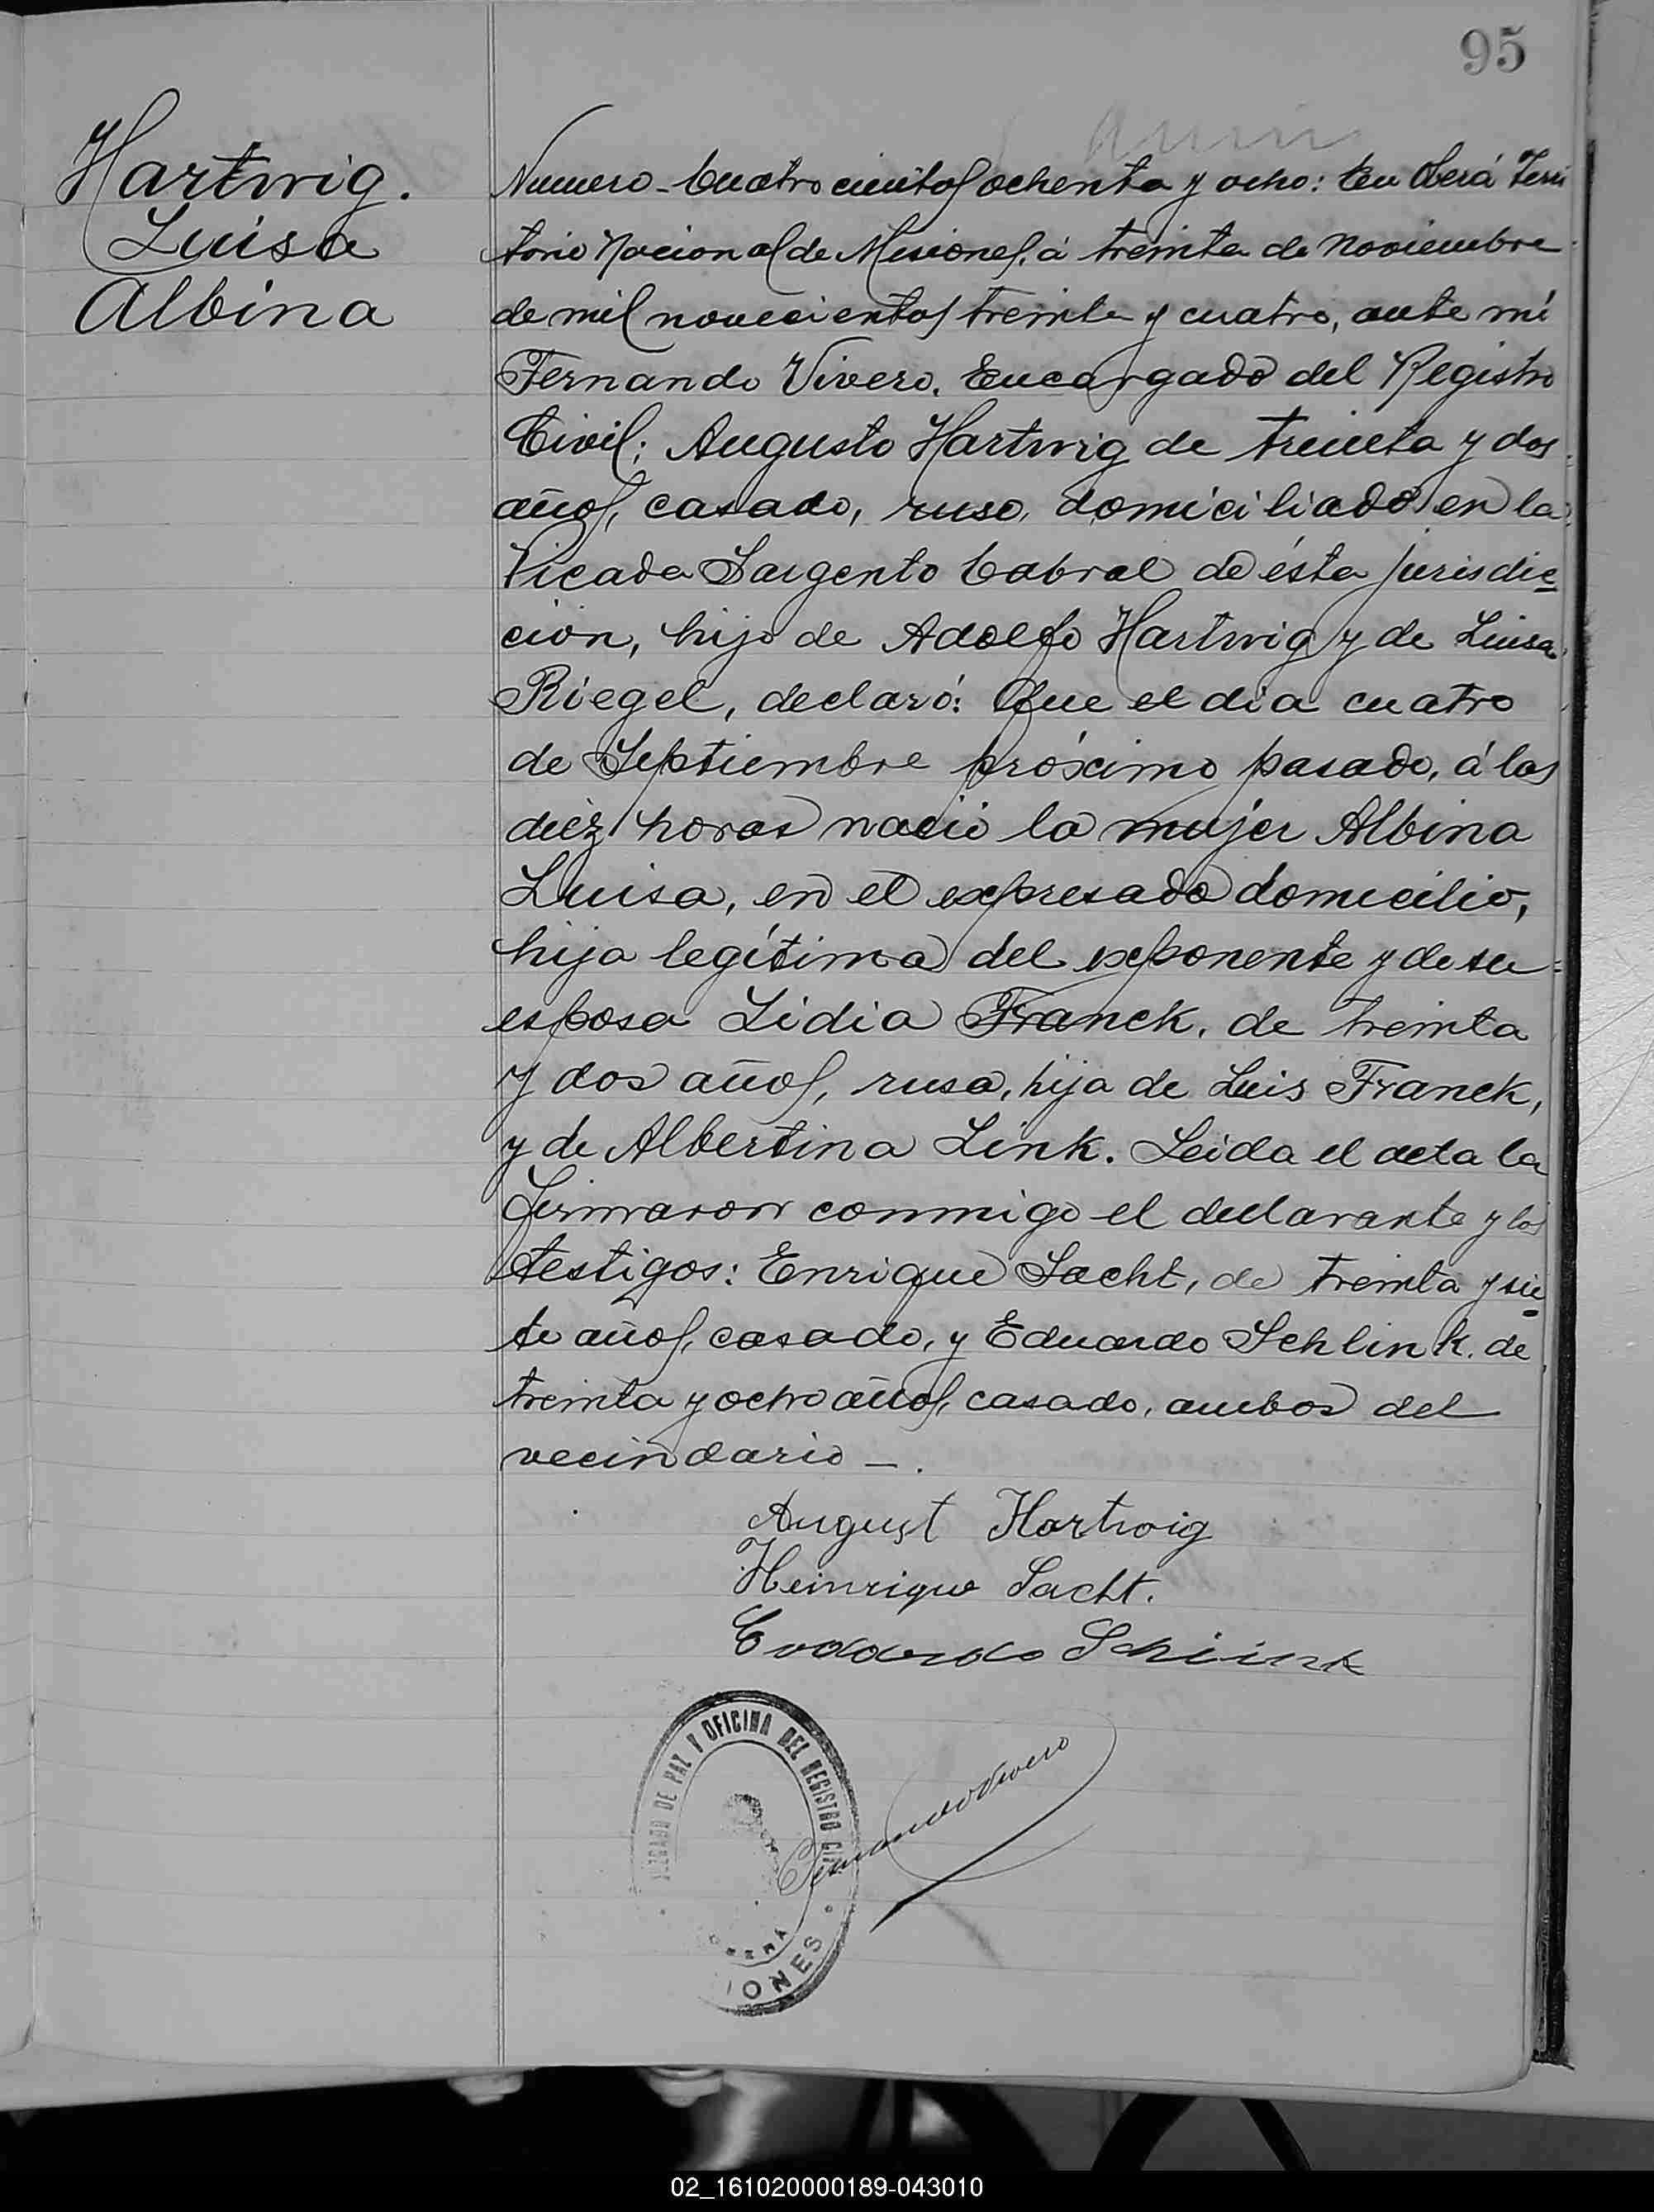 95
Hartwig.
Luisa
Albina
Numero - Cuatrocientos ochenta y ocho: En Oberá Terri
torio Nacional de Misiones, á treinta de Noviembre
de mil novecientos treinta y cuatro, ante mí
Fernando Vivero, Encargado del Registro
Civil: Augusto Hartwig de treinta y dos
años, casado, ruso, domiciliado en la
Picada Sargento Cabral de ésta jurisdic
cion, hijo de Adolfo Hartwig y de Luisa
Riegel, declaró: Que el dia cuatro
de Septiembre próximo pasado, á las
diez horas nació la mujer Albina
Luisa, en el expresado domicilio,
hija legítima del exponente y de su
esposa Lidia Franck, de treinta
y dos años, rusa, hija de Luis Franck,
y de Albertina Link. Leida el acta la
firmaron conmigo el declarante y los
testigos: Enrique Sacht, de treinta y sie
te años, casado, y Eduardo Schlink, de
treinta y ocho años, casado, ambos del
vecindario -.
August Hartwig
Heinrique Sacht.
Eduardo Schlink
JUZGADO DE PAZ Y OFICINA DEL REGISTRO CIVIL
OBERÁ
IONES
Fernando Vivero
02_161020000189-043010